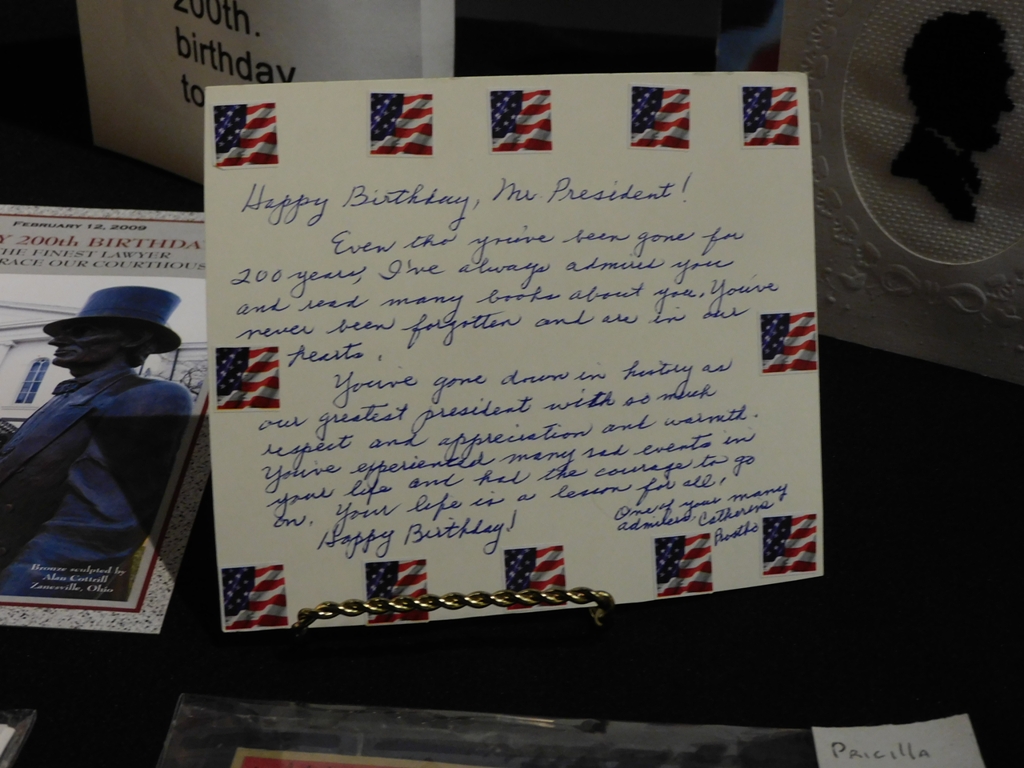 200th.
birthday
to
FEBRUARY 12, 2009
Y 200th BIRTHDA
THE FINEST LAWYER
RACE OUR COURTHOUS
Bronze sculpted by
Alan Cottrill
Zanesville, Ohio
Happy Birthday, Mr. President!
Even tho you've been gone for
200 years, I've always admired you
and read many books about you. You've
never been forgotten and are in our
hearts.
You've gone down in history as
our greatest president with so much
respect and appreciation and warmth.
You've experienced many sad events in
your life and had the courage to go
on. Your life is a lesson for all.
Happy Birthday!
One of your many
admirers, Catherine
Pricilla